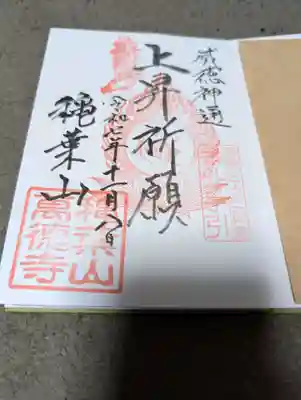 威徳神通
上昇祈願
令和七年十一月八日
穐葉山
穐葉山
高徳寺